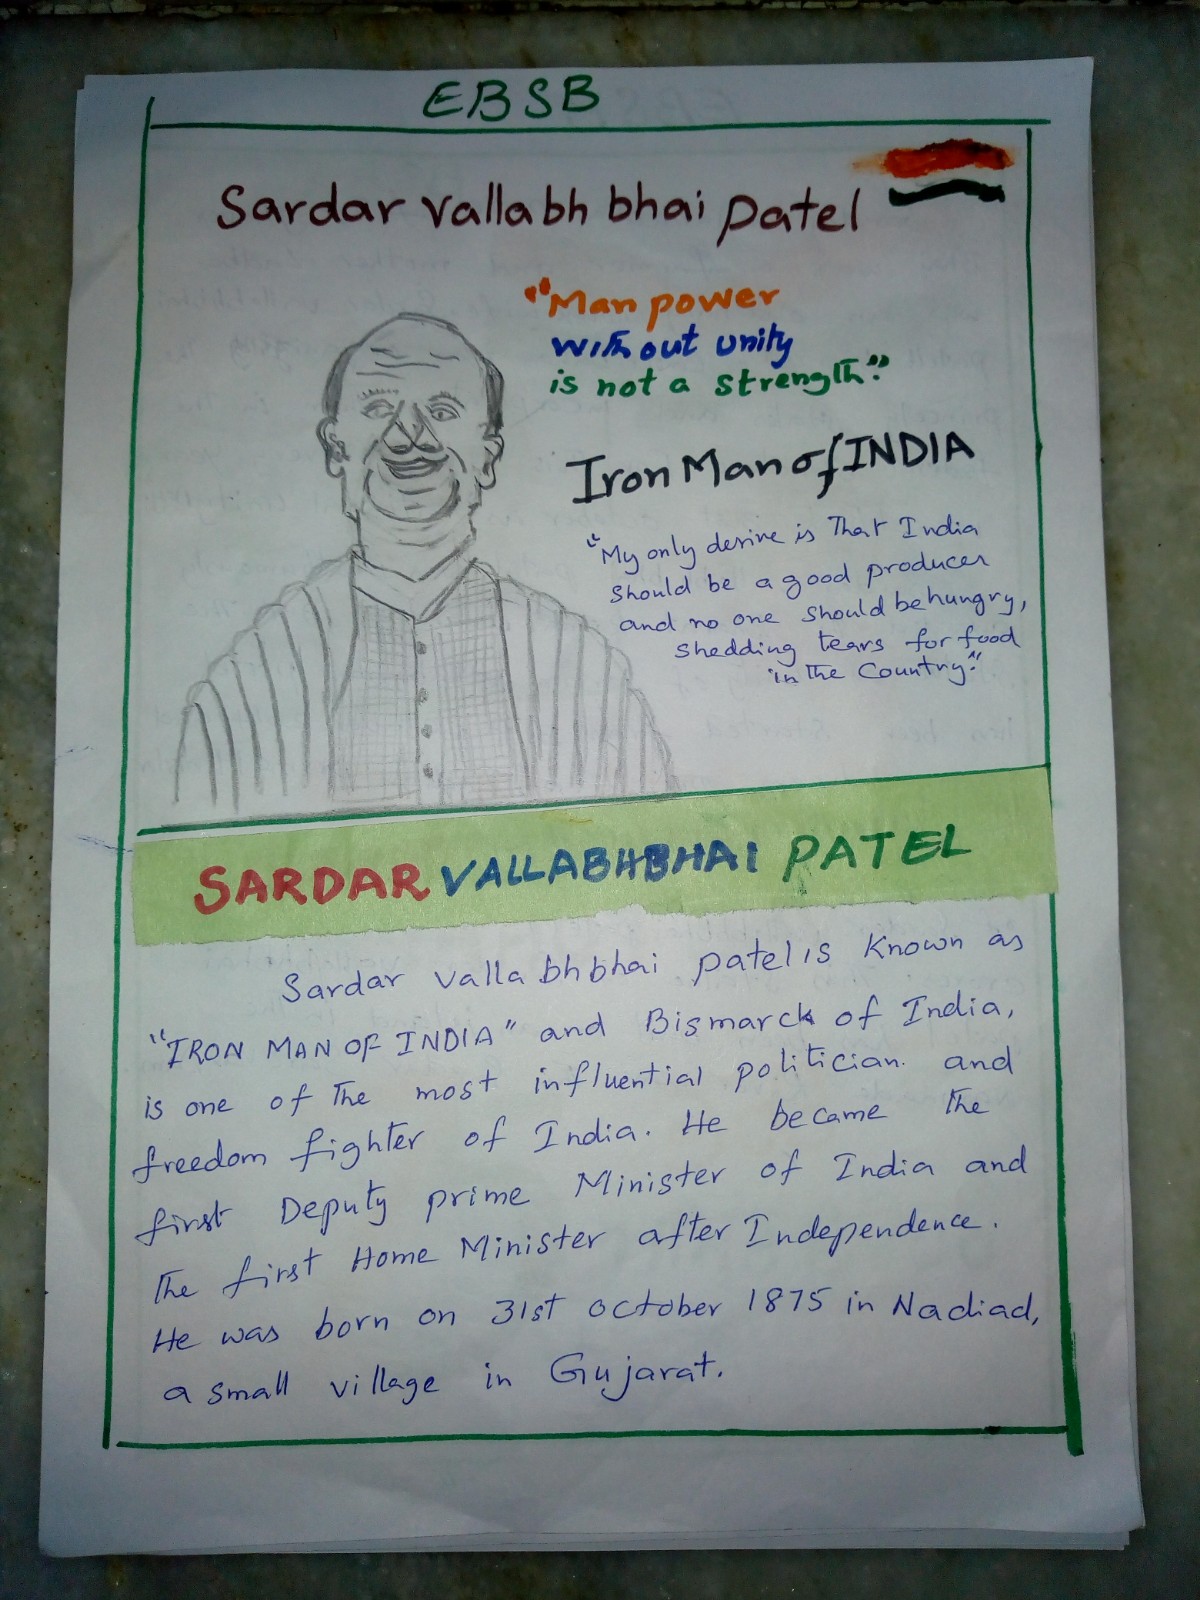 EBSB
Sardar vallabh bhai patel
"Man power
without unity
is not a strength."
Iron Man of INDIA
"My only desire is That India
should be a good producer
and no one should be hungry,
shedding tears for food
in The Country."
SARDAR VALLABHBHAI PATEL
Sardar vallabhbhai patel is known as
"IRON MAN OF INDIA" and Bismarck of India,
is one of The most influential politician. and
freedom fighter of India. He became The
first Deputy prime Minister of India and
The first Home Minister after Independence.
He was born on 31st october 1875 in Nadiad,
a small village in Gujarat.